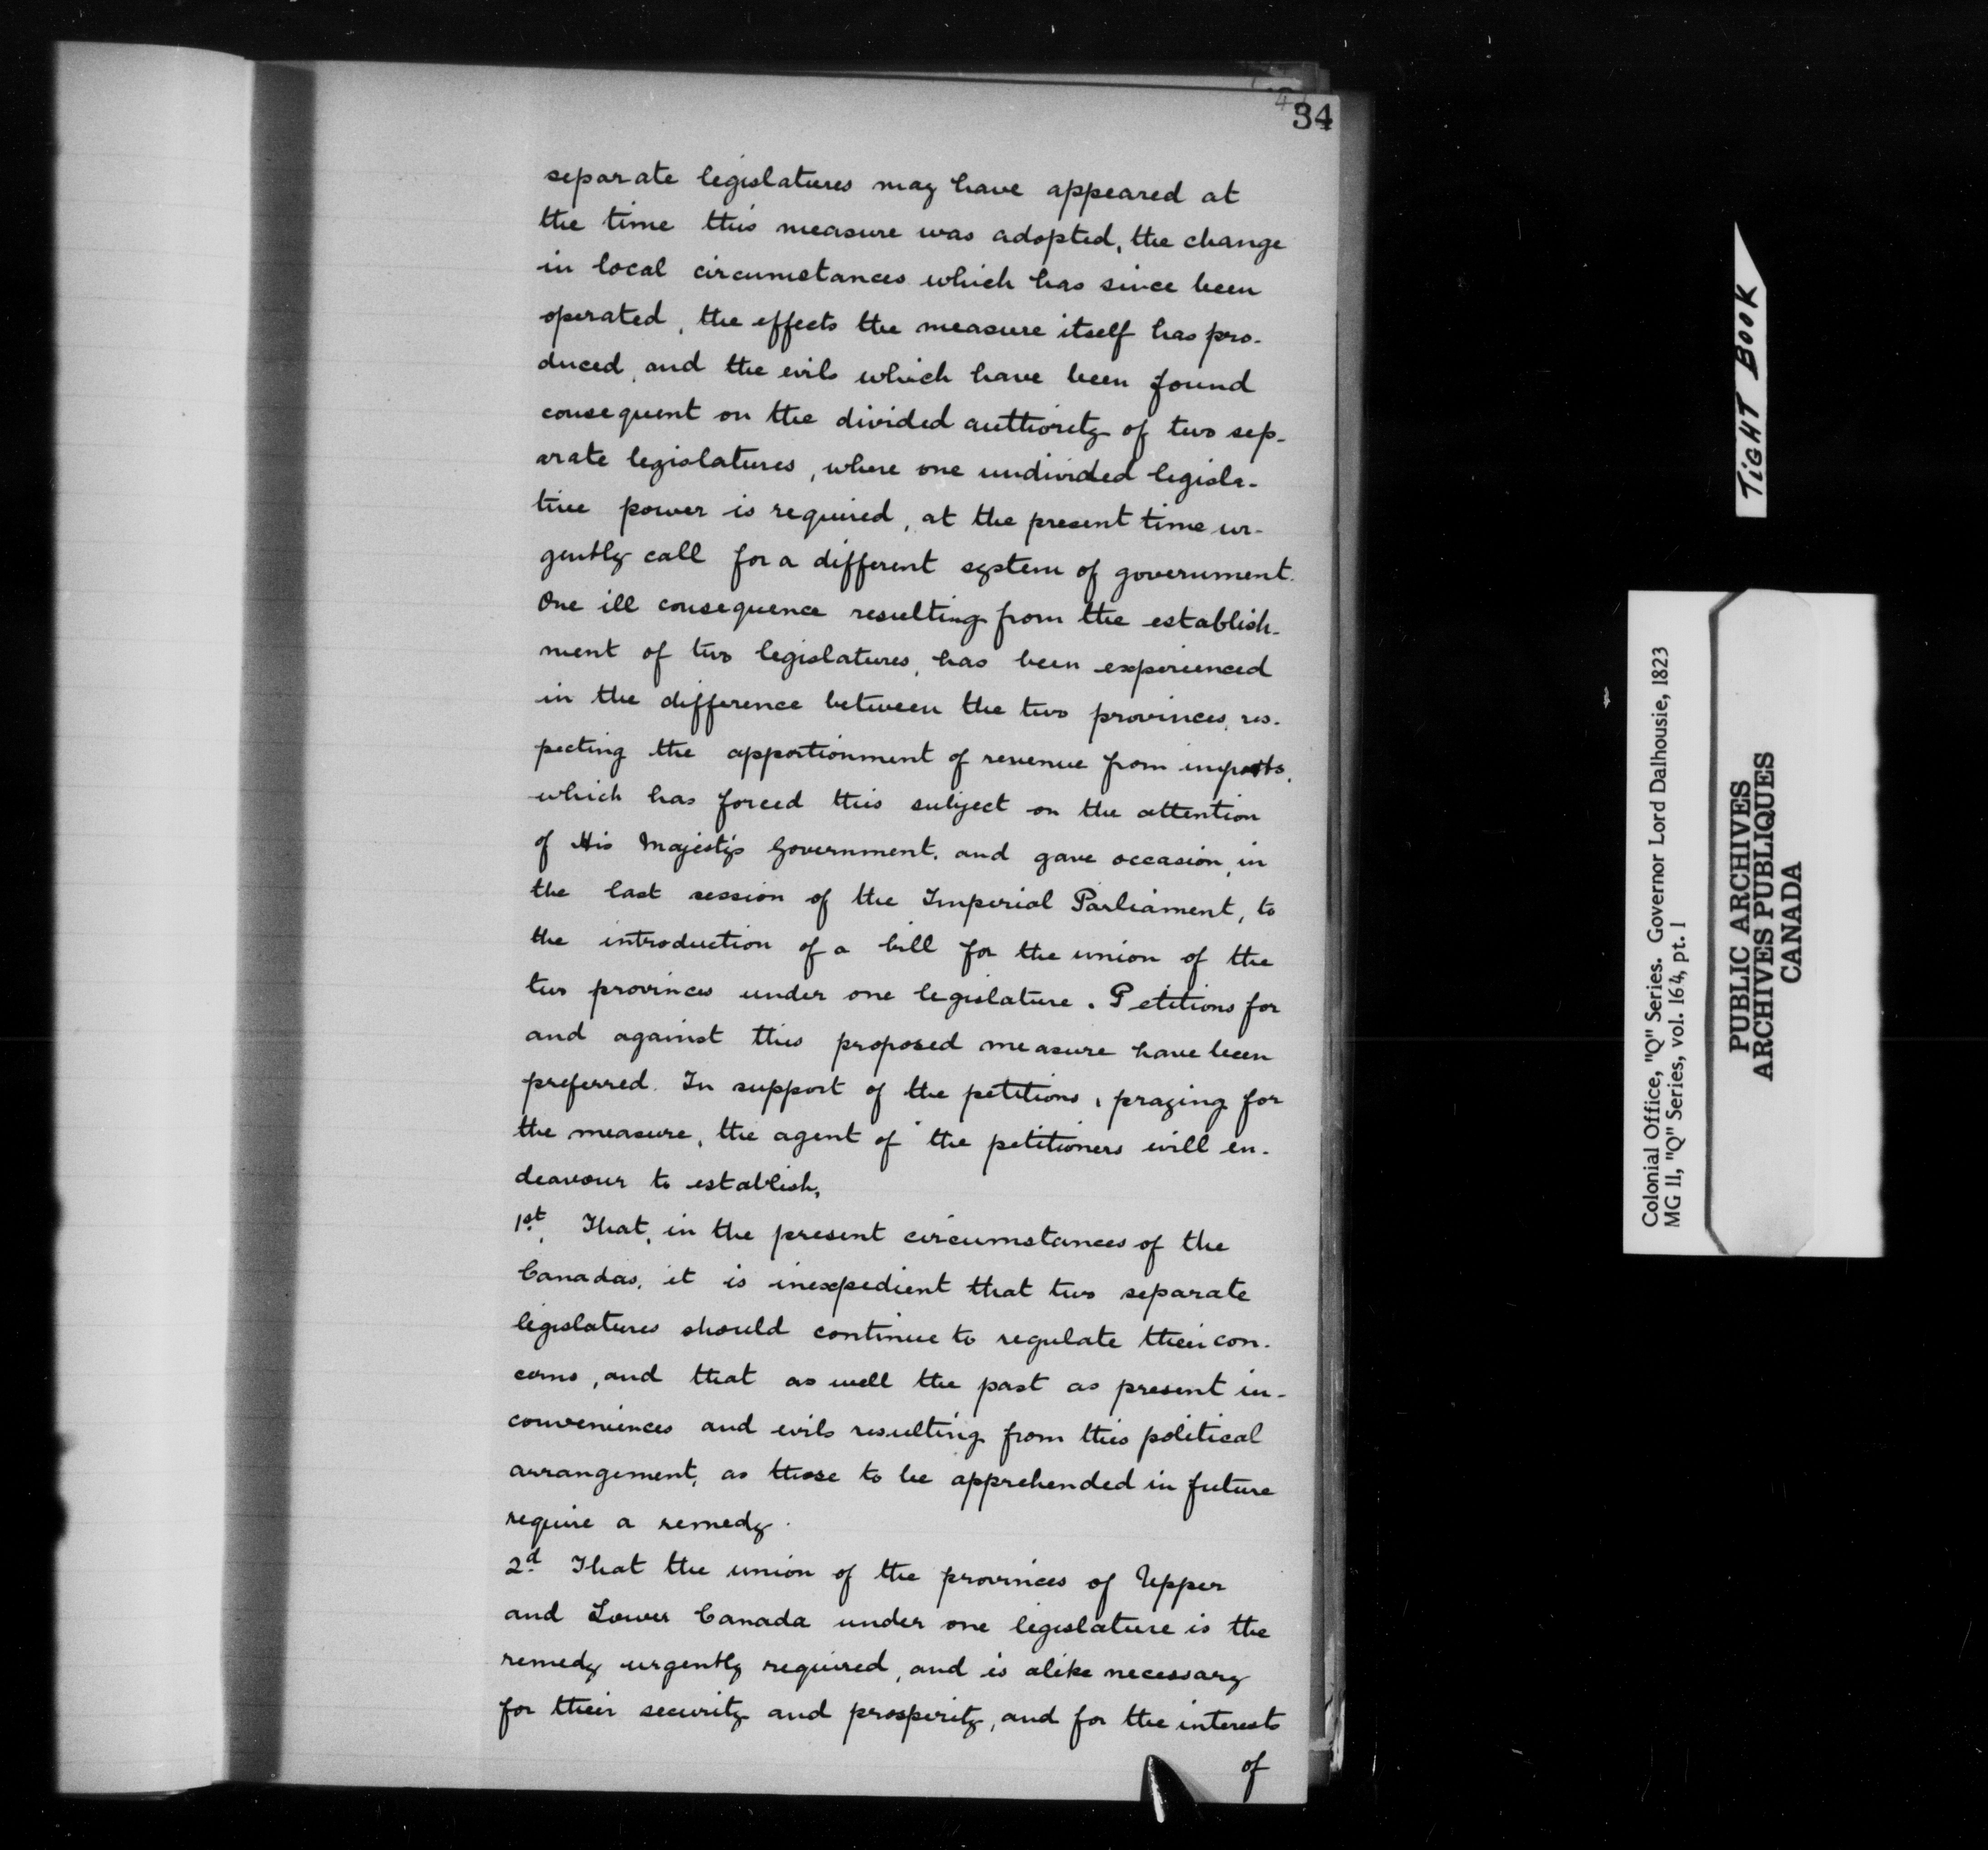 34
separate legislatures may have appeared at
the time this measure was adopted, the change
in local circumstances which has since been
operated, the effects the measure itself has pro-
duced, and the evils which have been found
consequent on the divided authority of two sep-
arate legislatures, where one undivided legisla-
tive power is required, at the present time ur-
gently call for a different system of government.
One ill consequence resulting from the establish-
ment of two legislatures, has been experienced
in the difference between the two provinces, res-
pecting the apportionment of revenue from imposts,
which has forced this subject on the attention
of His Majesty's Government, and gave occasion, in
the last session of the Imperial Parliament, to
the introduction of a bill for the union of the
two provinces under one legislature. Petitions for
and against this proposed measure have been
preferred. In support of the petitions, praying for
the measure, the agent of the petitioners will en-
deavour to establish,
1st, That, in the present circumstances of the
Canadas, it is inexpedient that two separate
legislatures should continue to regulate their con-
cerns, and that as well the past as present in-
conveniences and evils resulting from this political
arrangement, as those to be apprehended in future
require a remedy.
2d That the union of the provinces of Upper
and Lower Canada under one legislature is the
remedy urgently required, and is alike necessary
for their security and prosperity, and for the interests
of
TIGHT BOOK
Colonial Office, "Q" Series. Governor Lord Dalhousie, 1823
MG 11, "Q" Series, vol. 164, pt. 1
PUBLIC ARCHIVES
ARCHIVES PUBLIQUES
CANADA